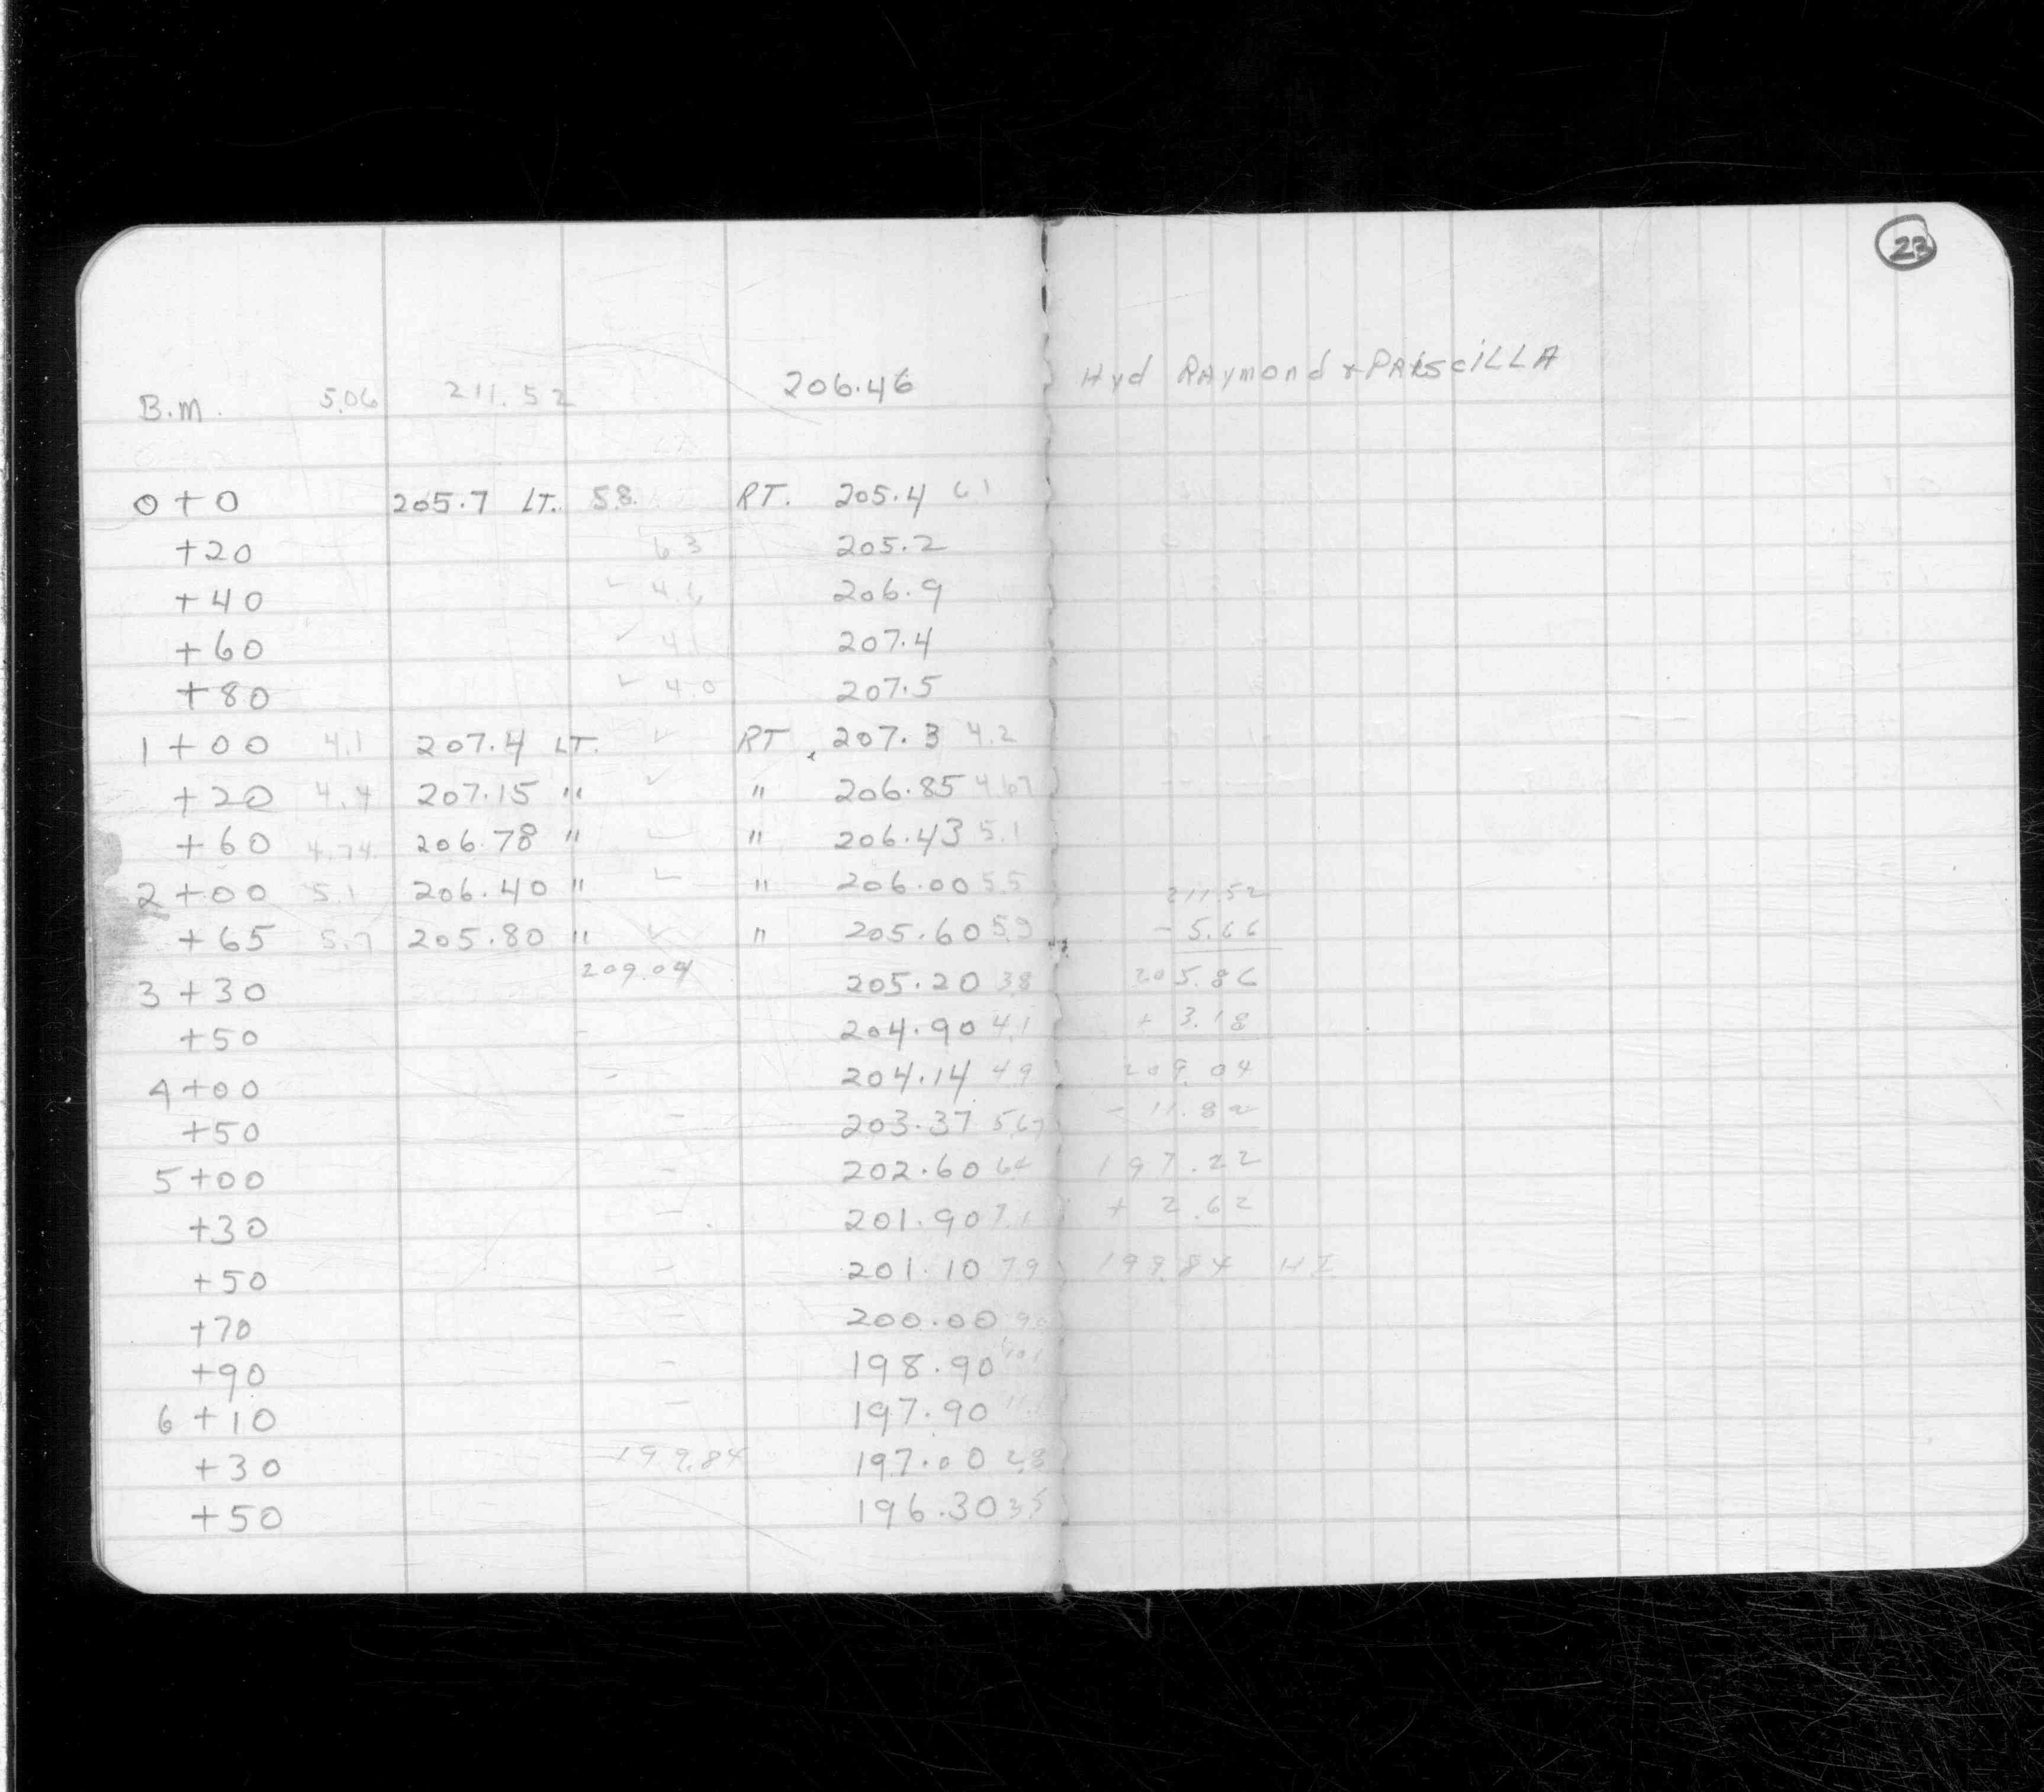 23
B.M. 5.06 211.52 206.46 Hyd RAymond & PRiscILLA
0+0 205.7 LT. 5.8 RT. 205.4 6.1
+20 6.3 205.2
+40 ✓ 4.6 206.9
+60 ✓ 4.1 207.4
+80 ✓ 4.0 207.5
1+00 4.1 207.4 LT. ✓ RT. 207.3 4.2
+20 4.4 207.15 " ✓ " 206.85 4.67
+60 4.74 206.78 " ✓ " 206.43 5.1
2+00 5.1 206.40 " ✓ " 206.00 5.5
+65 5.7 205.80 " ✓ " 205.60 5.9
209.04
3+30 205.20 3.8
+50 - 204.90 4.1
4+00 - 204.14 4.9
+50 - 203.37 5.67
5+00 - 202.60 6.4
+30 - 201.90 7.1
+50 - 201.10 7.9
+70 - 200.00 9.0
+90 - 198.90 10.1
6+10 - 197.90 11.1
+30 199.84 197.00 2.8
+50 196.30 3.5
211.52
- 5.66
205.86
+ 3.18
209.04
- 11.82
197.22
+ 2.62
199.84 HI